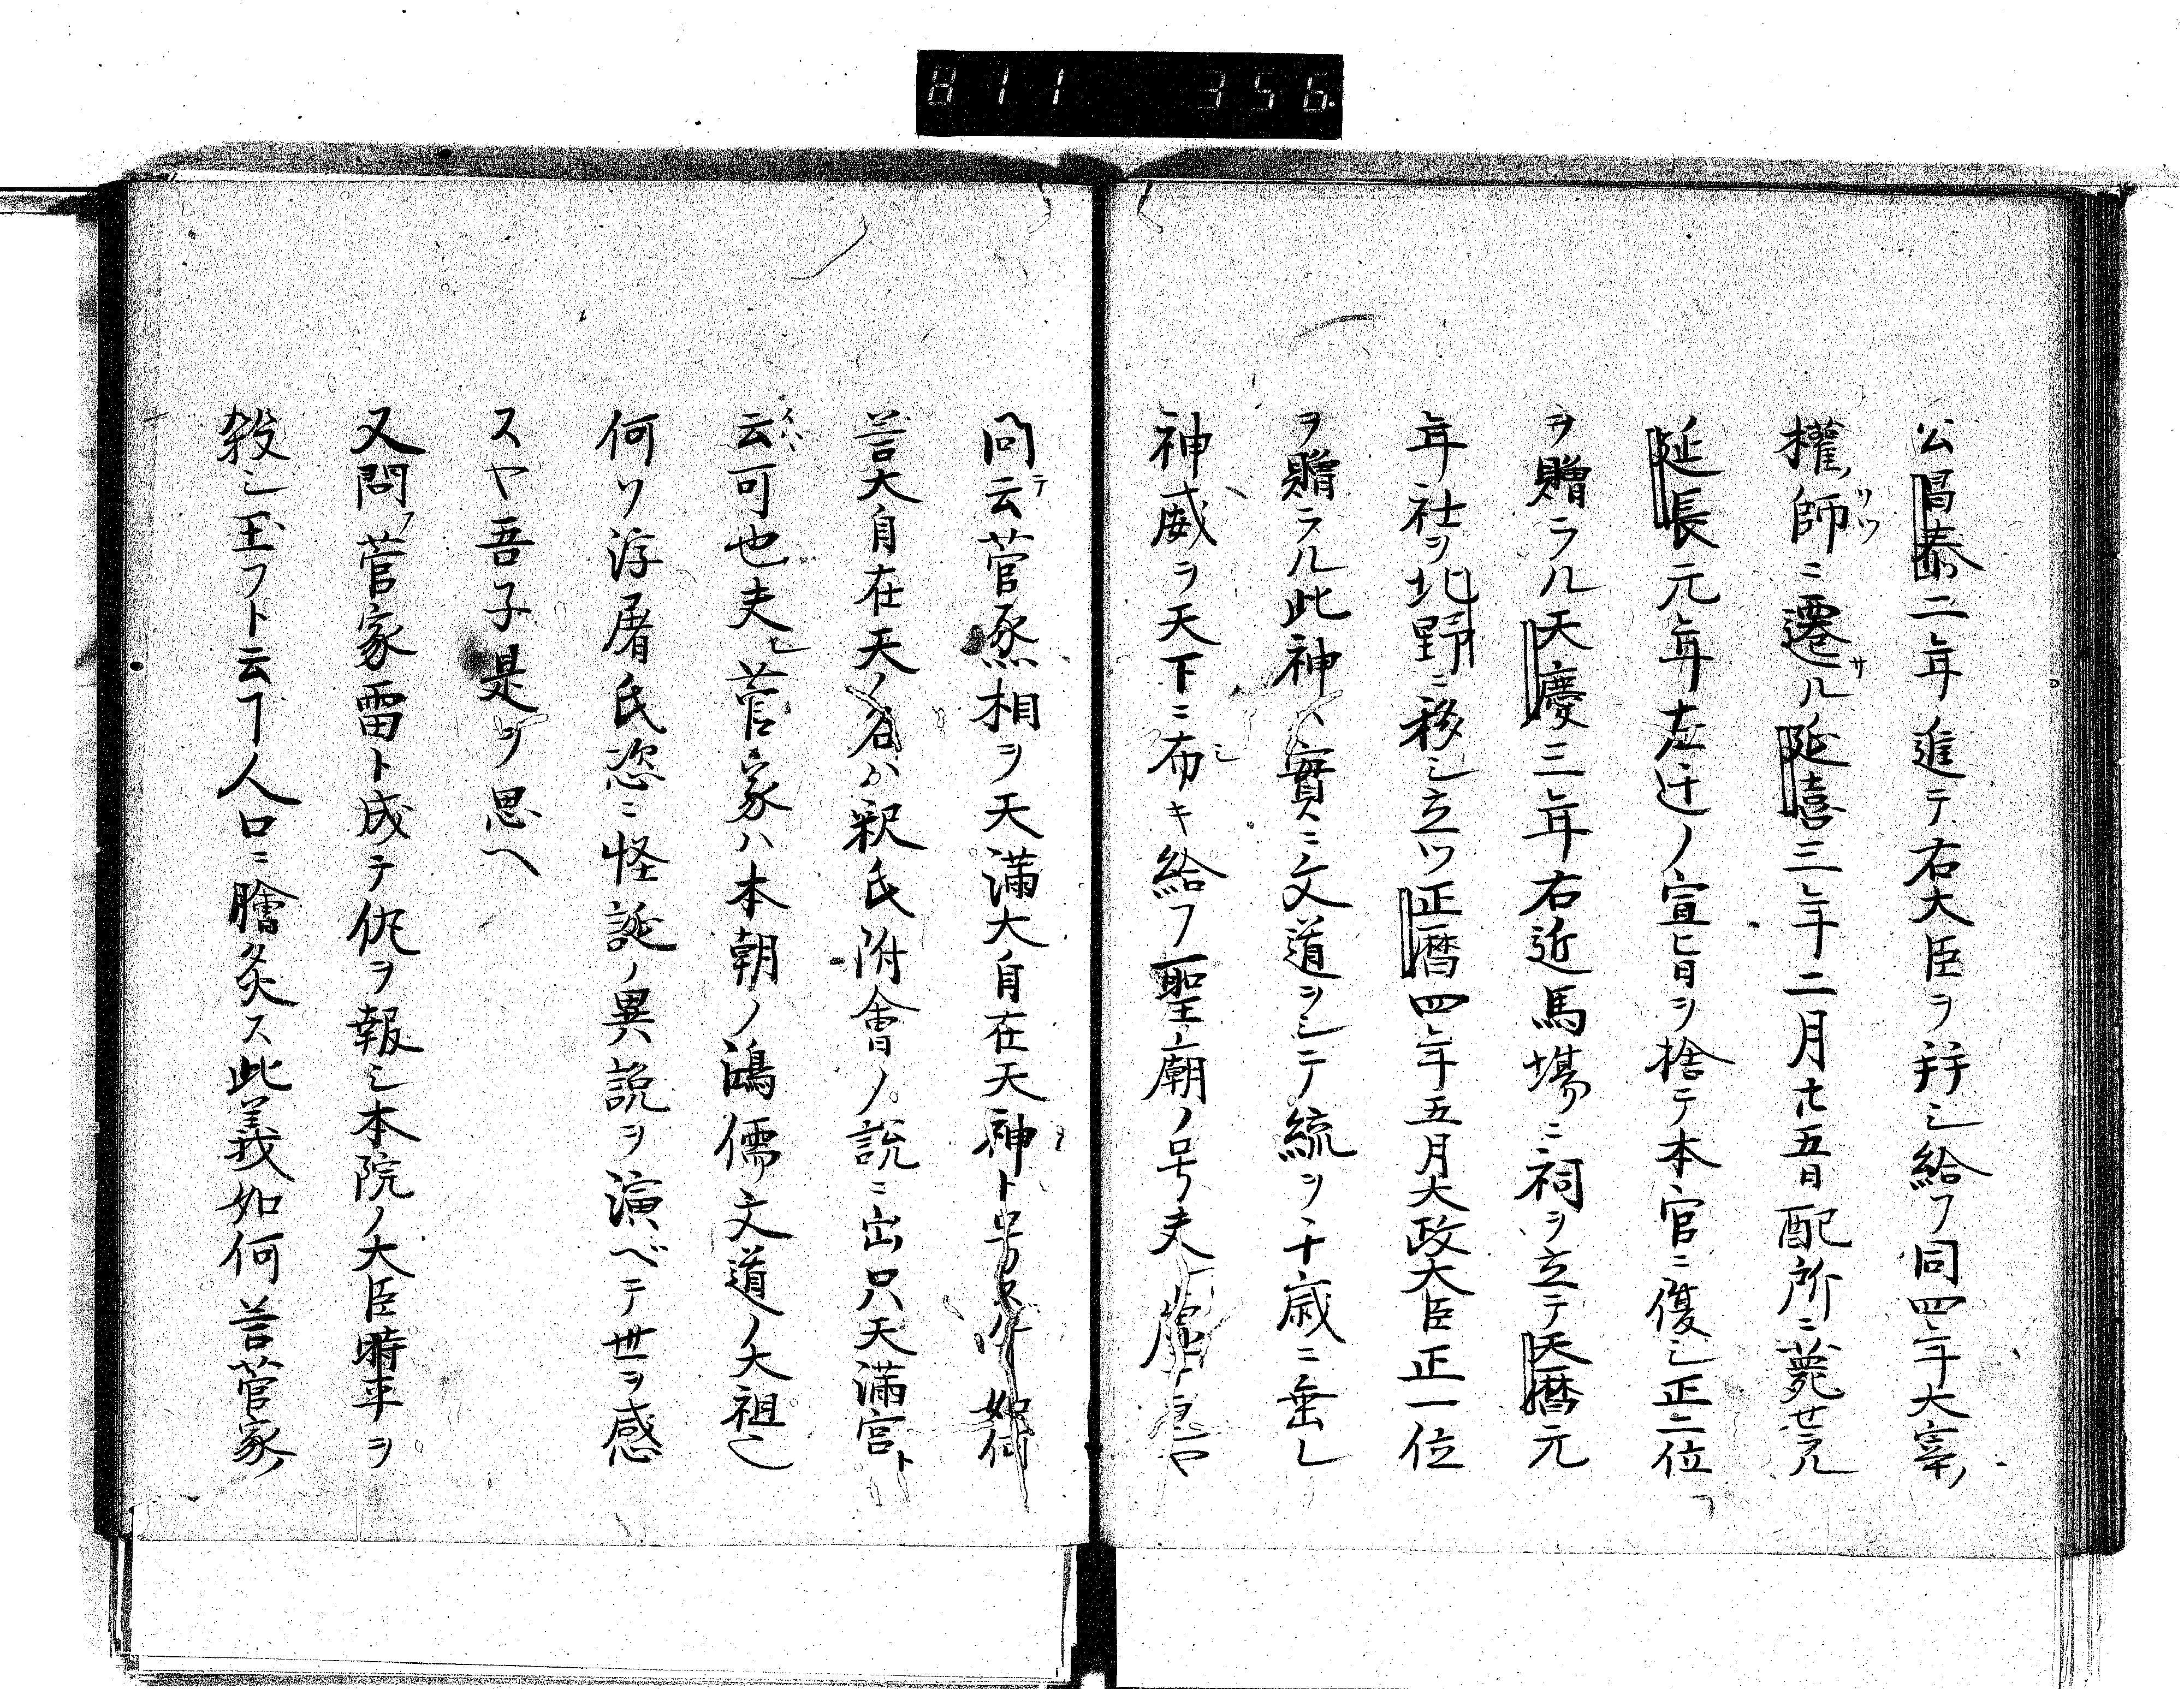 811 356
公昌泰二年進テ右大臣ヲ拜シ給フ同四年大宰ノ
權師ニ遷サル延喜三年二月廿五日配所ニ薨セラル
延長元年左迁ノ宣旨ヲ捨テ本官ニ復シ正二位
ヲ贈ラル天慶三年右近馬場ニ祠ヲ立テ天暦元
年社ヲ北野ニ移シ立ツ正暦四年五月大政大臣正一位
ヲ贈ラル此神ハ實ニ文道ヲシテ統ヲ千歳ニ垂レ
神威ヲ天下ニ布キ給フ聖廟ノ号夫虚
問テ云菅烝相ヲ天滿大自在天神ト号 如何
荅大自在天ノ名ハ釈氏附會ノ説ニ出只天滿宮ト
云可也夫レ菅家ハ本朝ノ鴻儒文道ノ大祖也
何ソ浮屠氏恣ニ怪誕ノ異説ヲ演ベテ世ヲ惑
スヤ吾子是ヲ思ヘ
又問フ菅家雷ト成テ仇ヲ報シ本院ノ大臣時平ヲ
殺シ玉フト云ヿ人口ニ膾炙ス此義如何荅菅家ノ